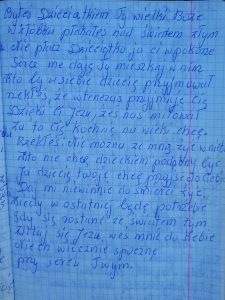 Byłeś Dzieciątkiem Ty wielki Boże
W żłobku płakałeś nad światem złym
Nie płacz Dzieciątko ja ci w pokorze
Serce me daję Ty mieszkaj w nim
Kto by w siebie dziecię przyjmował
rzekłeś, że wtenczas przyjmuje Cię
Dzięki Ci Jezu, żeś nas miłował
Za to Cię kochać na wieki chcę.
Rzekłeś: Nie może ze mną żyć w niebie
Kto nie chce dzieckiem podobny być
Ja dziecię twoje chcę przyjść do Ciebie
Daj mi niewinnie do śmierci żyć,
Kiedy w ostatniej będę potrzebie
gdy się rostanę ze światem tym
Zlituj się Jezu, weź mnie do siebie
Niech wiecznie spocznę
przy sercu Twym.